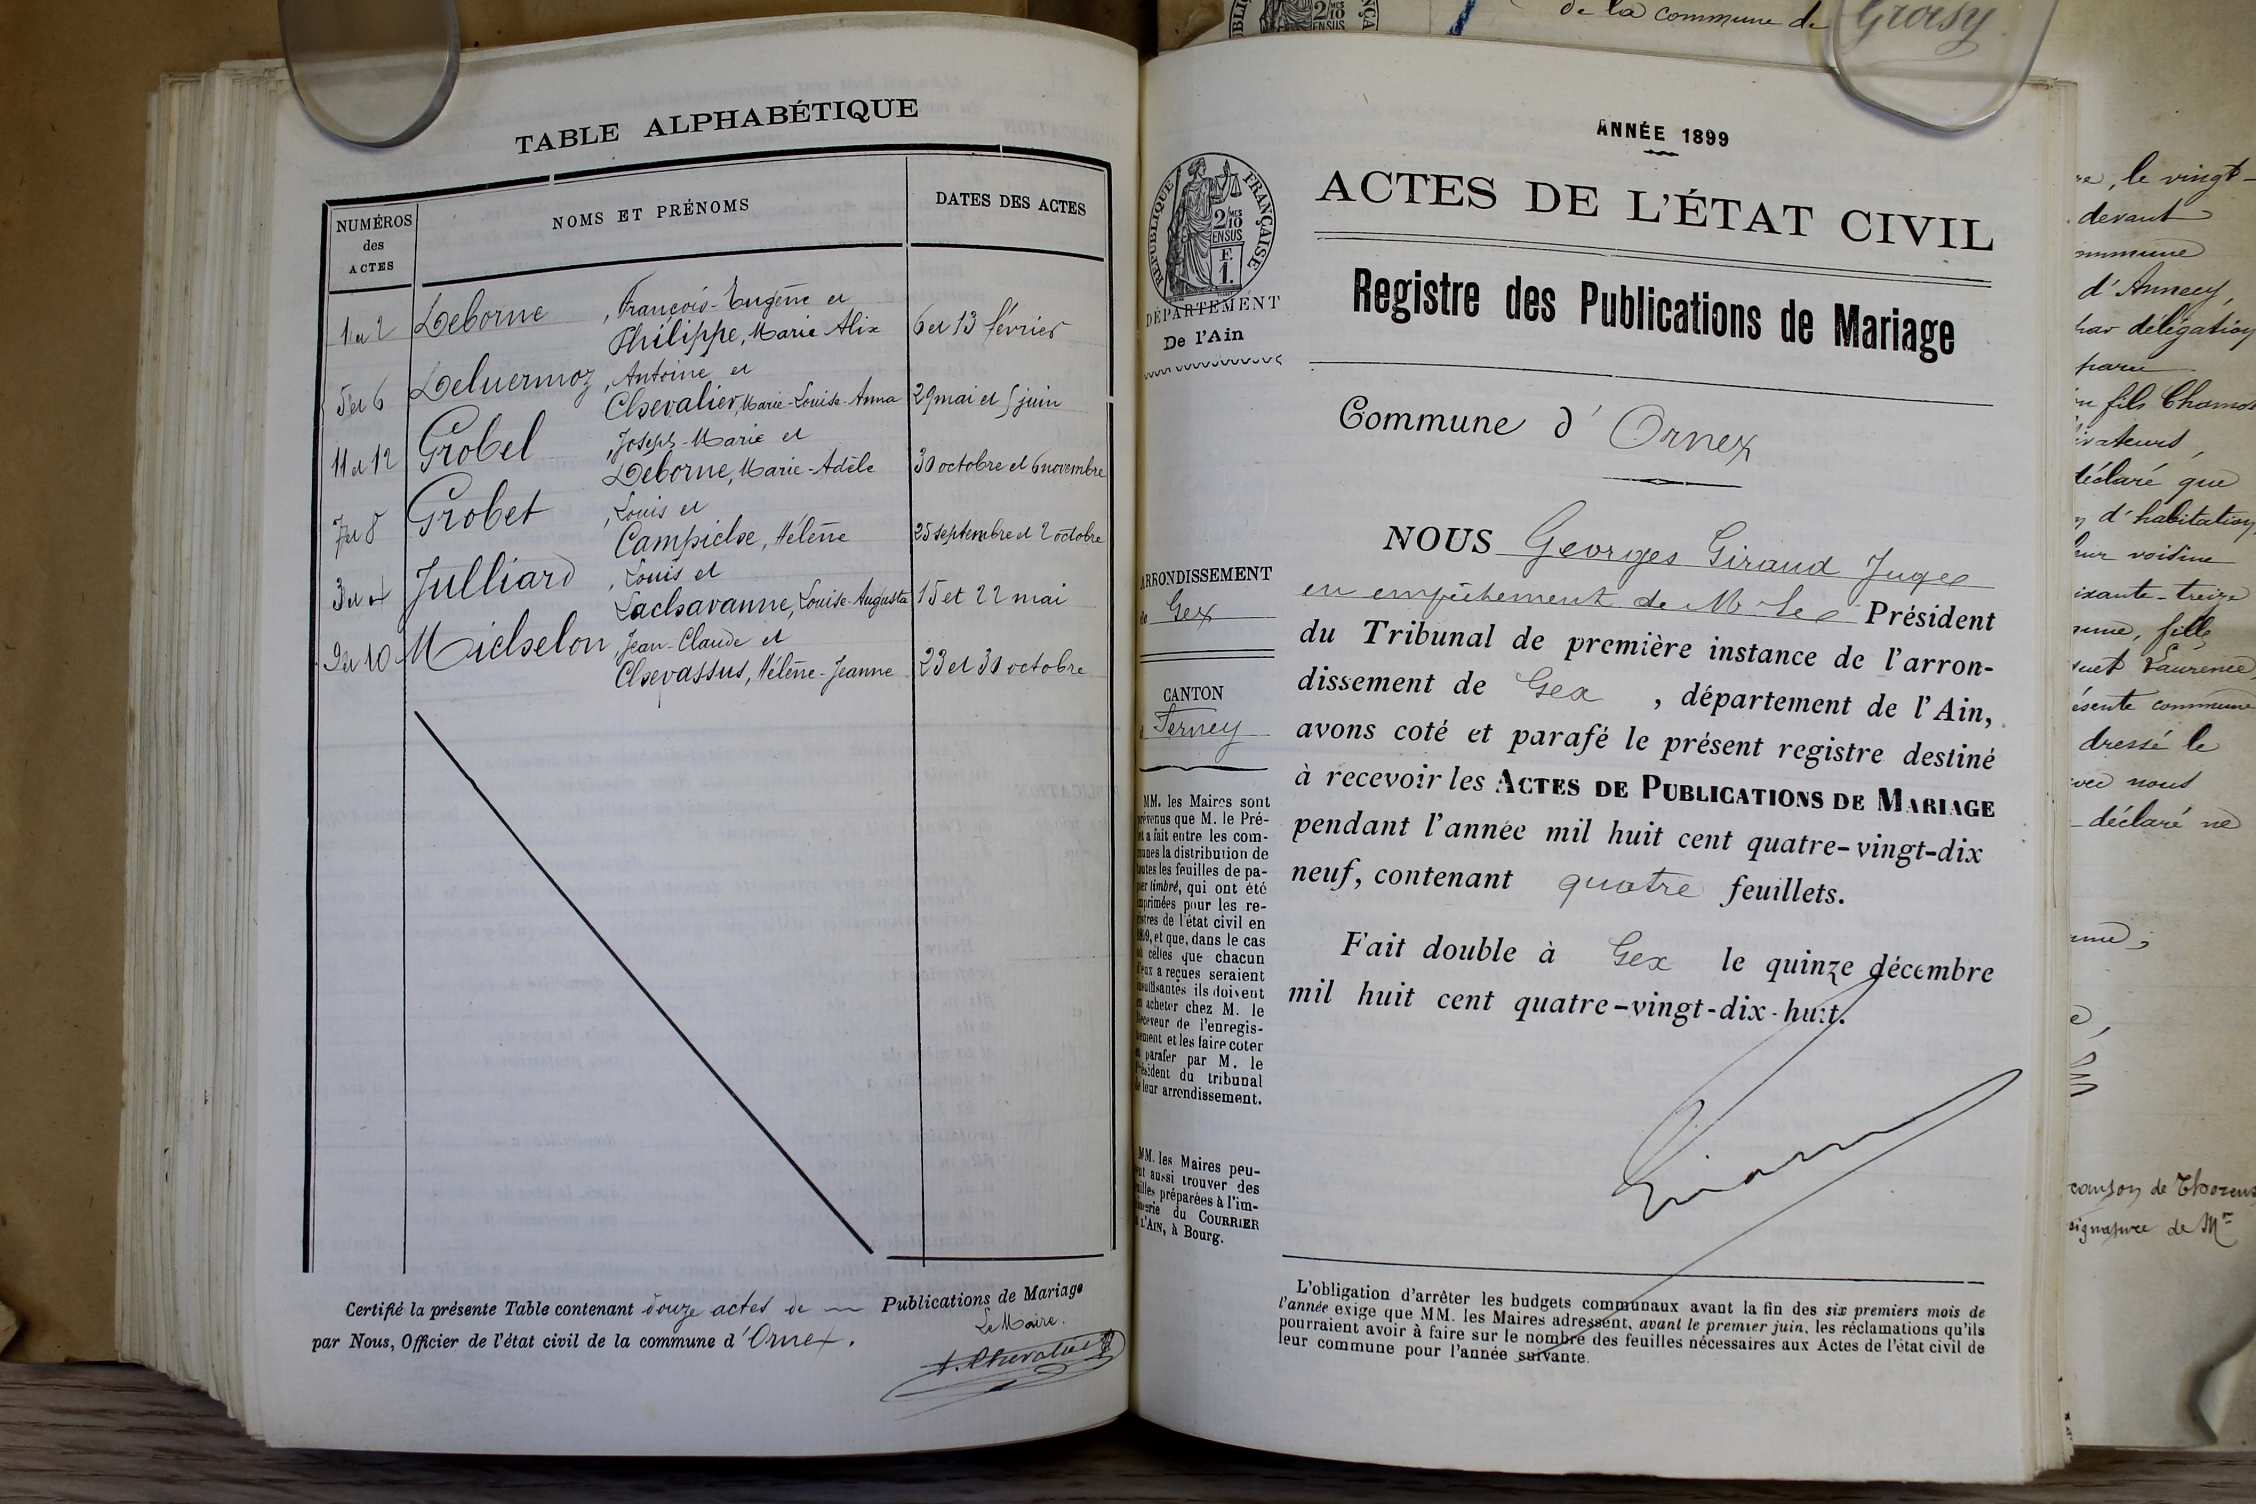 TABLE ALPHABÉTIQUE
NUMÉROS
des
ACTES
NOMS ET PRÉNOMS
DATES DES ACTES
1 et 2 Deborne, François-Eugène et
Philippe, Marie Alix 6 et 13 février
5 et 6 Deluermoz, Antoine et
Chevalier, Marie-Louise-Anna 29 mai et 5 juin
11 et 12 Grobel, Joseph-Marie et
Deborne, Marie-Adèle 30 octobre et 6 novembre
7 et 8 Grobet, Louis et
Campiche, Hélène 25 septembre et 2 octobre
3 et 4 Julliard, Louis et
Lachavanne, Louise-Augusta 15 et 22 mai
9 et 10 Michelon, Jean-Claude et
Chevassus, Hélène-Jeanne 23 et 30 octobre
Certifié la présente Table contenant douze actes de Publications de Mariage
par Nous, Officier de l'état civil de la commune d'Ornex.
Le Maire.
Chevalier
ANNÉE 1899
ACTES DE L'ÉTAT CIVIL
RÉPUBLIQUE FRANÇAISE
2/10
EN SUS
F.
1.
DÉPARTEMENT
De l'Ain
Registre des Publications de Mariage
Commune d'Ornex
ARRONDISSEMENT
de Gex
CANTON
Ferney
NOUS Georges Giraud Juge
en empêchement de M le Président
du Tribunal de première instance de l'arron-
dissement de Gex, département de l'Ain,
avons coté et parafé le présent registre destiné
à recevoir les ACTES DE PUBLICATIONS DE MARIAGE
pendant l'année mil huit cent quatre-vingt-dix
neuf, contenant quatre feuillets.
Fait double à Gex le quinze décembre
mil huit cent quatre-vingt-dix-huit.
MM. les Maires sont
prévenus que M. le Pré-
fet a fait entre les com-
munes la distribution de
toutes les feuilles de pa-
pier timbré, qui ont été
imprimées pour les re-
gistres de l'état civil en
1899, et que, dans le cas
où celles que chacun
d'eux a reçues seraient
insuffisantes ils doivent
en acheter chez M. le
Receveur de l'enregis-
trement et les faire coter
et parafer par M. le
Président du tribunal
de leur arrondissement.
MM. les Maires peu-
vent aussi trouver des
feuilles préparées à l'im-
primerie du COURRIER
DE L'AIN, à Bourg.
L'obligation d'arrêter les budgets communaux avant la fin des six premiers mois de
l'année exige que MM. les Maires adressent, avant le premier juin, les réclamations qu'ils
pourraient avoir à faire sur le nombre des feuilles nécessaires aux Actes de l'état civil de
leur commune pour l'année suivante.
de la commune de Groisy
le vingt-
devant
commune
d'Annecy,
par délégation
fils
déclaré que
d'habitation
leur voisine
treize
fille
Laurence
présente commune
dressé le
avec nous
déclaré ne
de Thorens
signature de Mr